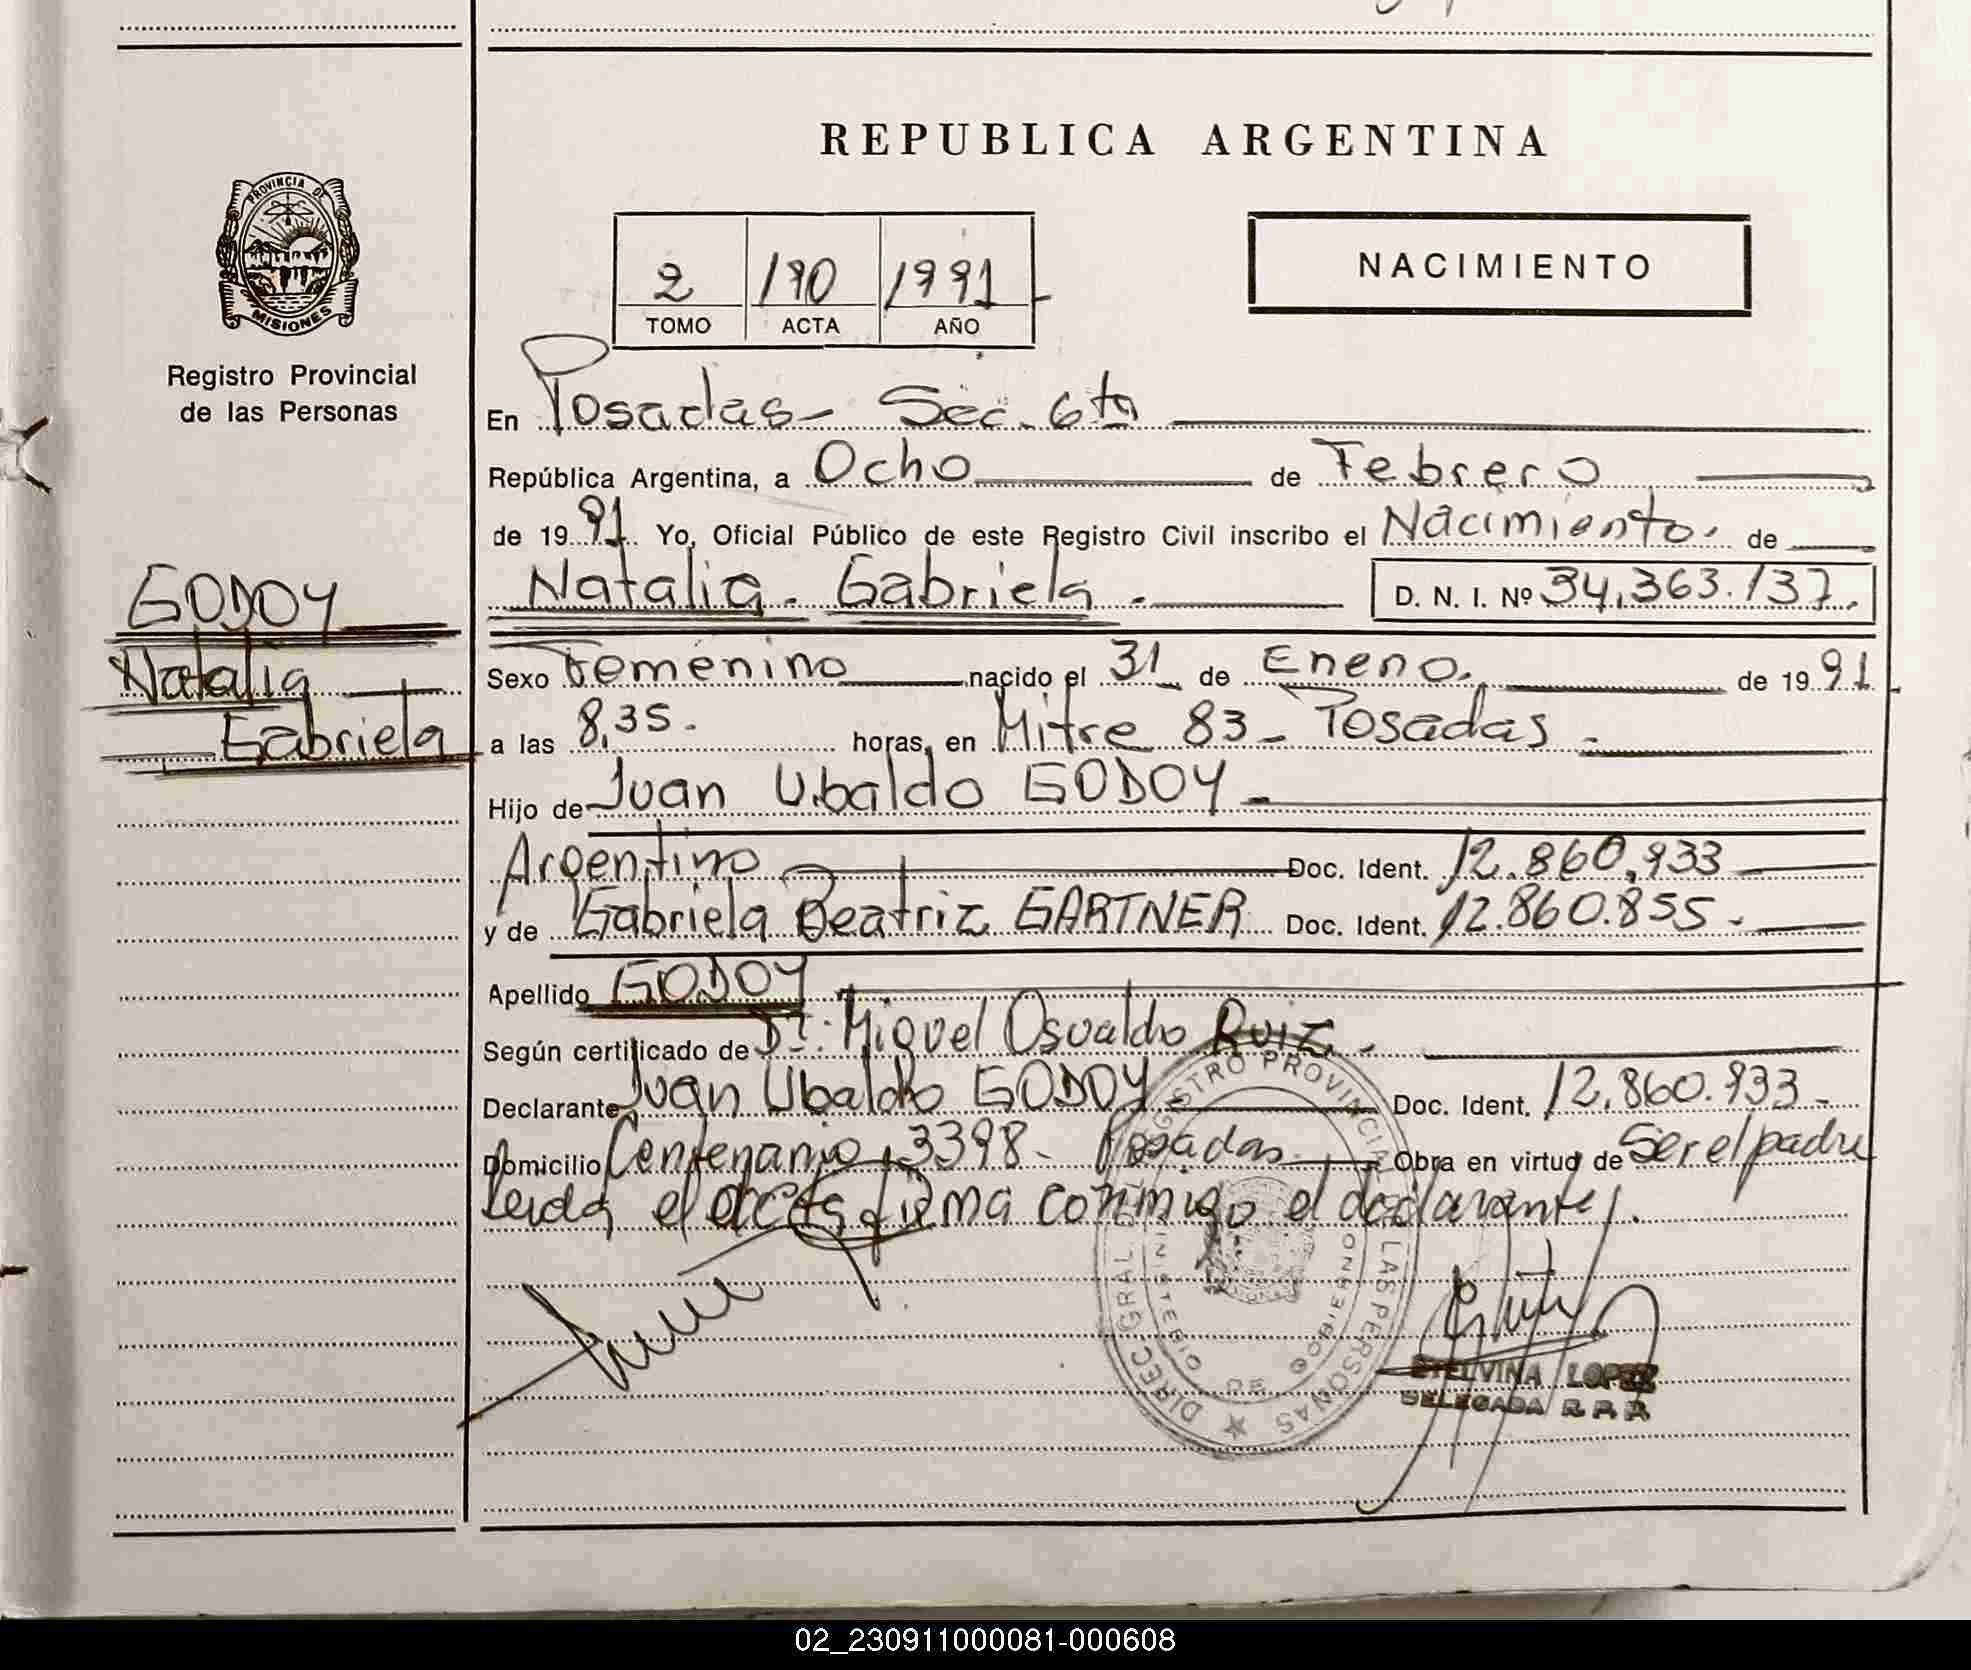 REPUBLICA ARGENTINA
PROVINCIA DE
MISIONES
Registro Provincial
de las Personas
2 190 1991
TOMO ACTA AÑO
NACIMIENTO
En Posadas - Sec. 6ta
República Argentina, a Ocho de Febrero
de 1991. Yo, Oficial Público de este Registro Civil inscribo el Nacimiento. de
Natalia - Gabriela - D. N. I. Nº 34,363.137.
GODOY
Natalia
Gabriela
Sexo Femenino nacido el 31 de Enero. de 1991
a las 8,35. horas, en Mitre 83 - Posadas -
Hijo de Juan Ubaldo GODOY -
Argentino Doc. Ident. 12.860.933
y de Gabriela Beatriz GARTNER Doc. Ident. 12.860.855 -
Apellido GODOY
Según certificado de Dr. Miguel Osvaldo Ruiz -
Declarante Juan Ubaldo GODOY - Doc. Ident. 12.860.933 -
Domicilio Centenario 3398 - Posadas Obra en virtud de Ser el padre
leida el acta firma conmigo el declarante
DIREC. GRAL. DEL REGISTRO PROVINCIAL DE LAS PERSONAS
MINISTERIO DE GOBIERNO
ETELVINA LOPEZ
DELEGADA R. P. P.
02_230911000081-000608